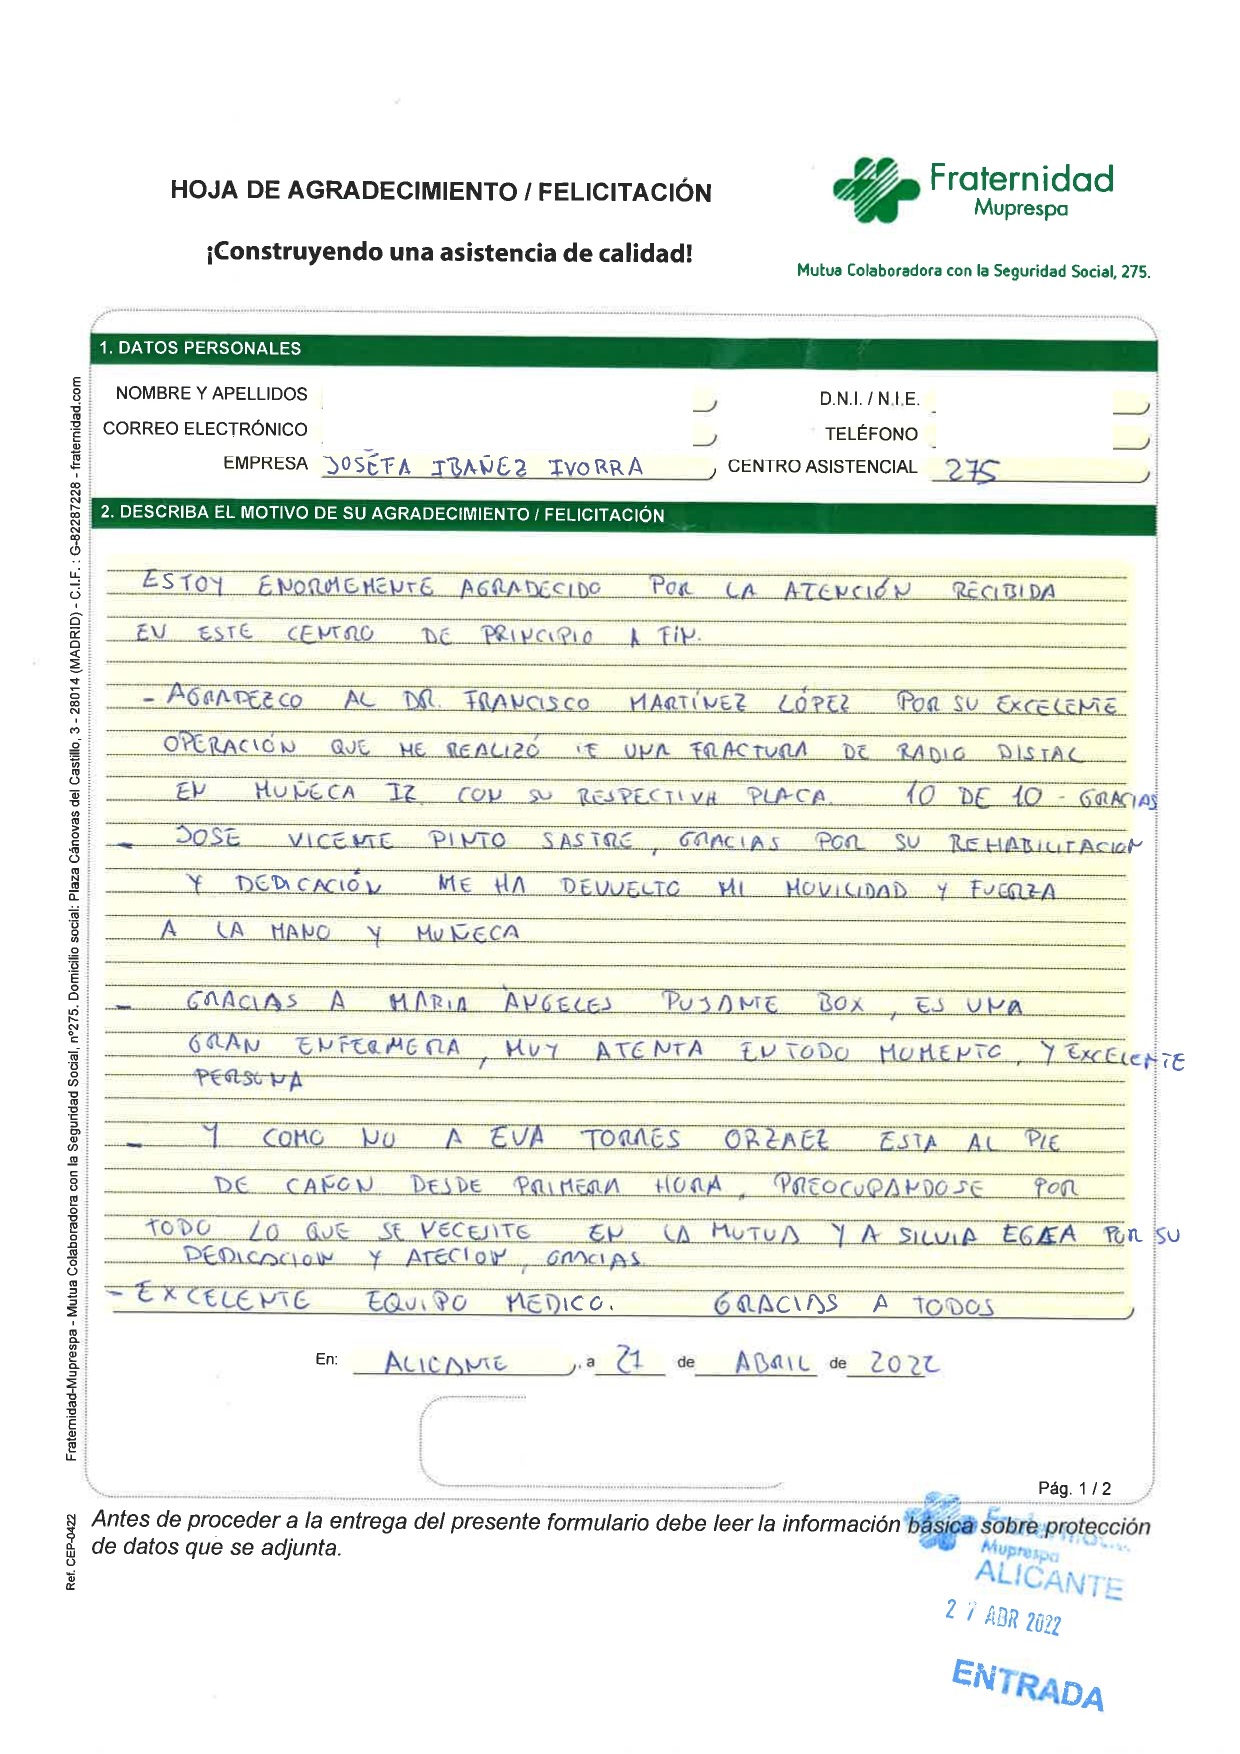 HOJA DE AGRADECIMIENTO / FELICITACIÓN
¡Construyendo una asistencia de calidad!
Fraternidad
Muprespa
Mutua Colaboradora con la Seguridad Social, 275.
1. DATOS PERSONALES
NOMBRE Y APELLIDOS
D.N.I. / N.I.E.
CORREO ELECTRÓNICO
TELÉFONO
EMPRESA JOSÉFA IBAÑEZ IVORRA
CENTRO ASISTENCIAL 275
2. DESCRIBA EL MOTIVO DE SU AGRADECIMIENTO / FELICITACIÓN
ESTOY ENORMEMENTE AGRADECIDO POR LA ATENCIÓN RECIBIDA
EN ESTE CENTRO DE PRINCIPIO A FIN.
- AGRADEZCO AL DR. FRANCISCO MARTÍNEZ LÓPEZ POR SU EXCELENTE
OPERACIÓN QUE ME REALIZÓ DE UNA FRACTURA DE RADIO DISTAL
EN MUÑECA IZ. CON SU RESPECTIVA PLACA. 10 DE 10 - GRACIAS
- JOSE VICENTE PINTO SASTRE, GRACIAS POR SU REHABILITACION
Y DEDICACIÓN ME HA DEVUELTO MI MOVILIDAD Y FUERZA
A LA MANO Y MUÑECA
- GRACIAS A MARIA ÀNGELES PUJANTE BOX, ES UNA
GRAN ENFERMERA, MUY ATENTA EN TODO MOMENTO, Y EXCELENTE
PERSONA
- Y COMO NO A EVA TORRES ORZAEZ ESTA AL PIE
DE CAÑON DESDE PRIMERA HORA, PREOCUPANDOSE POR
TODO LO QUE SE NECESITE EN LA MUTUA Y A SILVIA EGEA POR SU
DEDICACION Y ATECION, GRACIAS.
- EXCELENTE EQUIPO MEDICO. GRACIAS A TODOS
En: ALICANTE, a 21 de ABRIL de 2022
Pág. 1 / 2
Antes de proceder a la entrega del presente formulario debe leer la información básica sobre protección
de datos que se adjunta.
Fraternidad
Muprespa
ALICANTE
27 ABR 2022
ENTRADA
Fraternidad-Muprespa - Mutua Colaboradora con la Seguridad Social, nº275. Domicilio social: Plaza Cánovas del Castillo, 3 - 28014 (MADRID) - C.I.F. : G-82287228 - fraternidad.com
Ref. CEP-0422